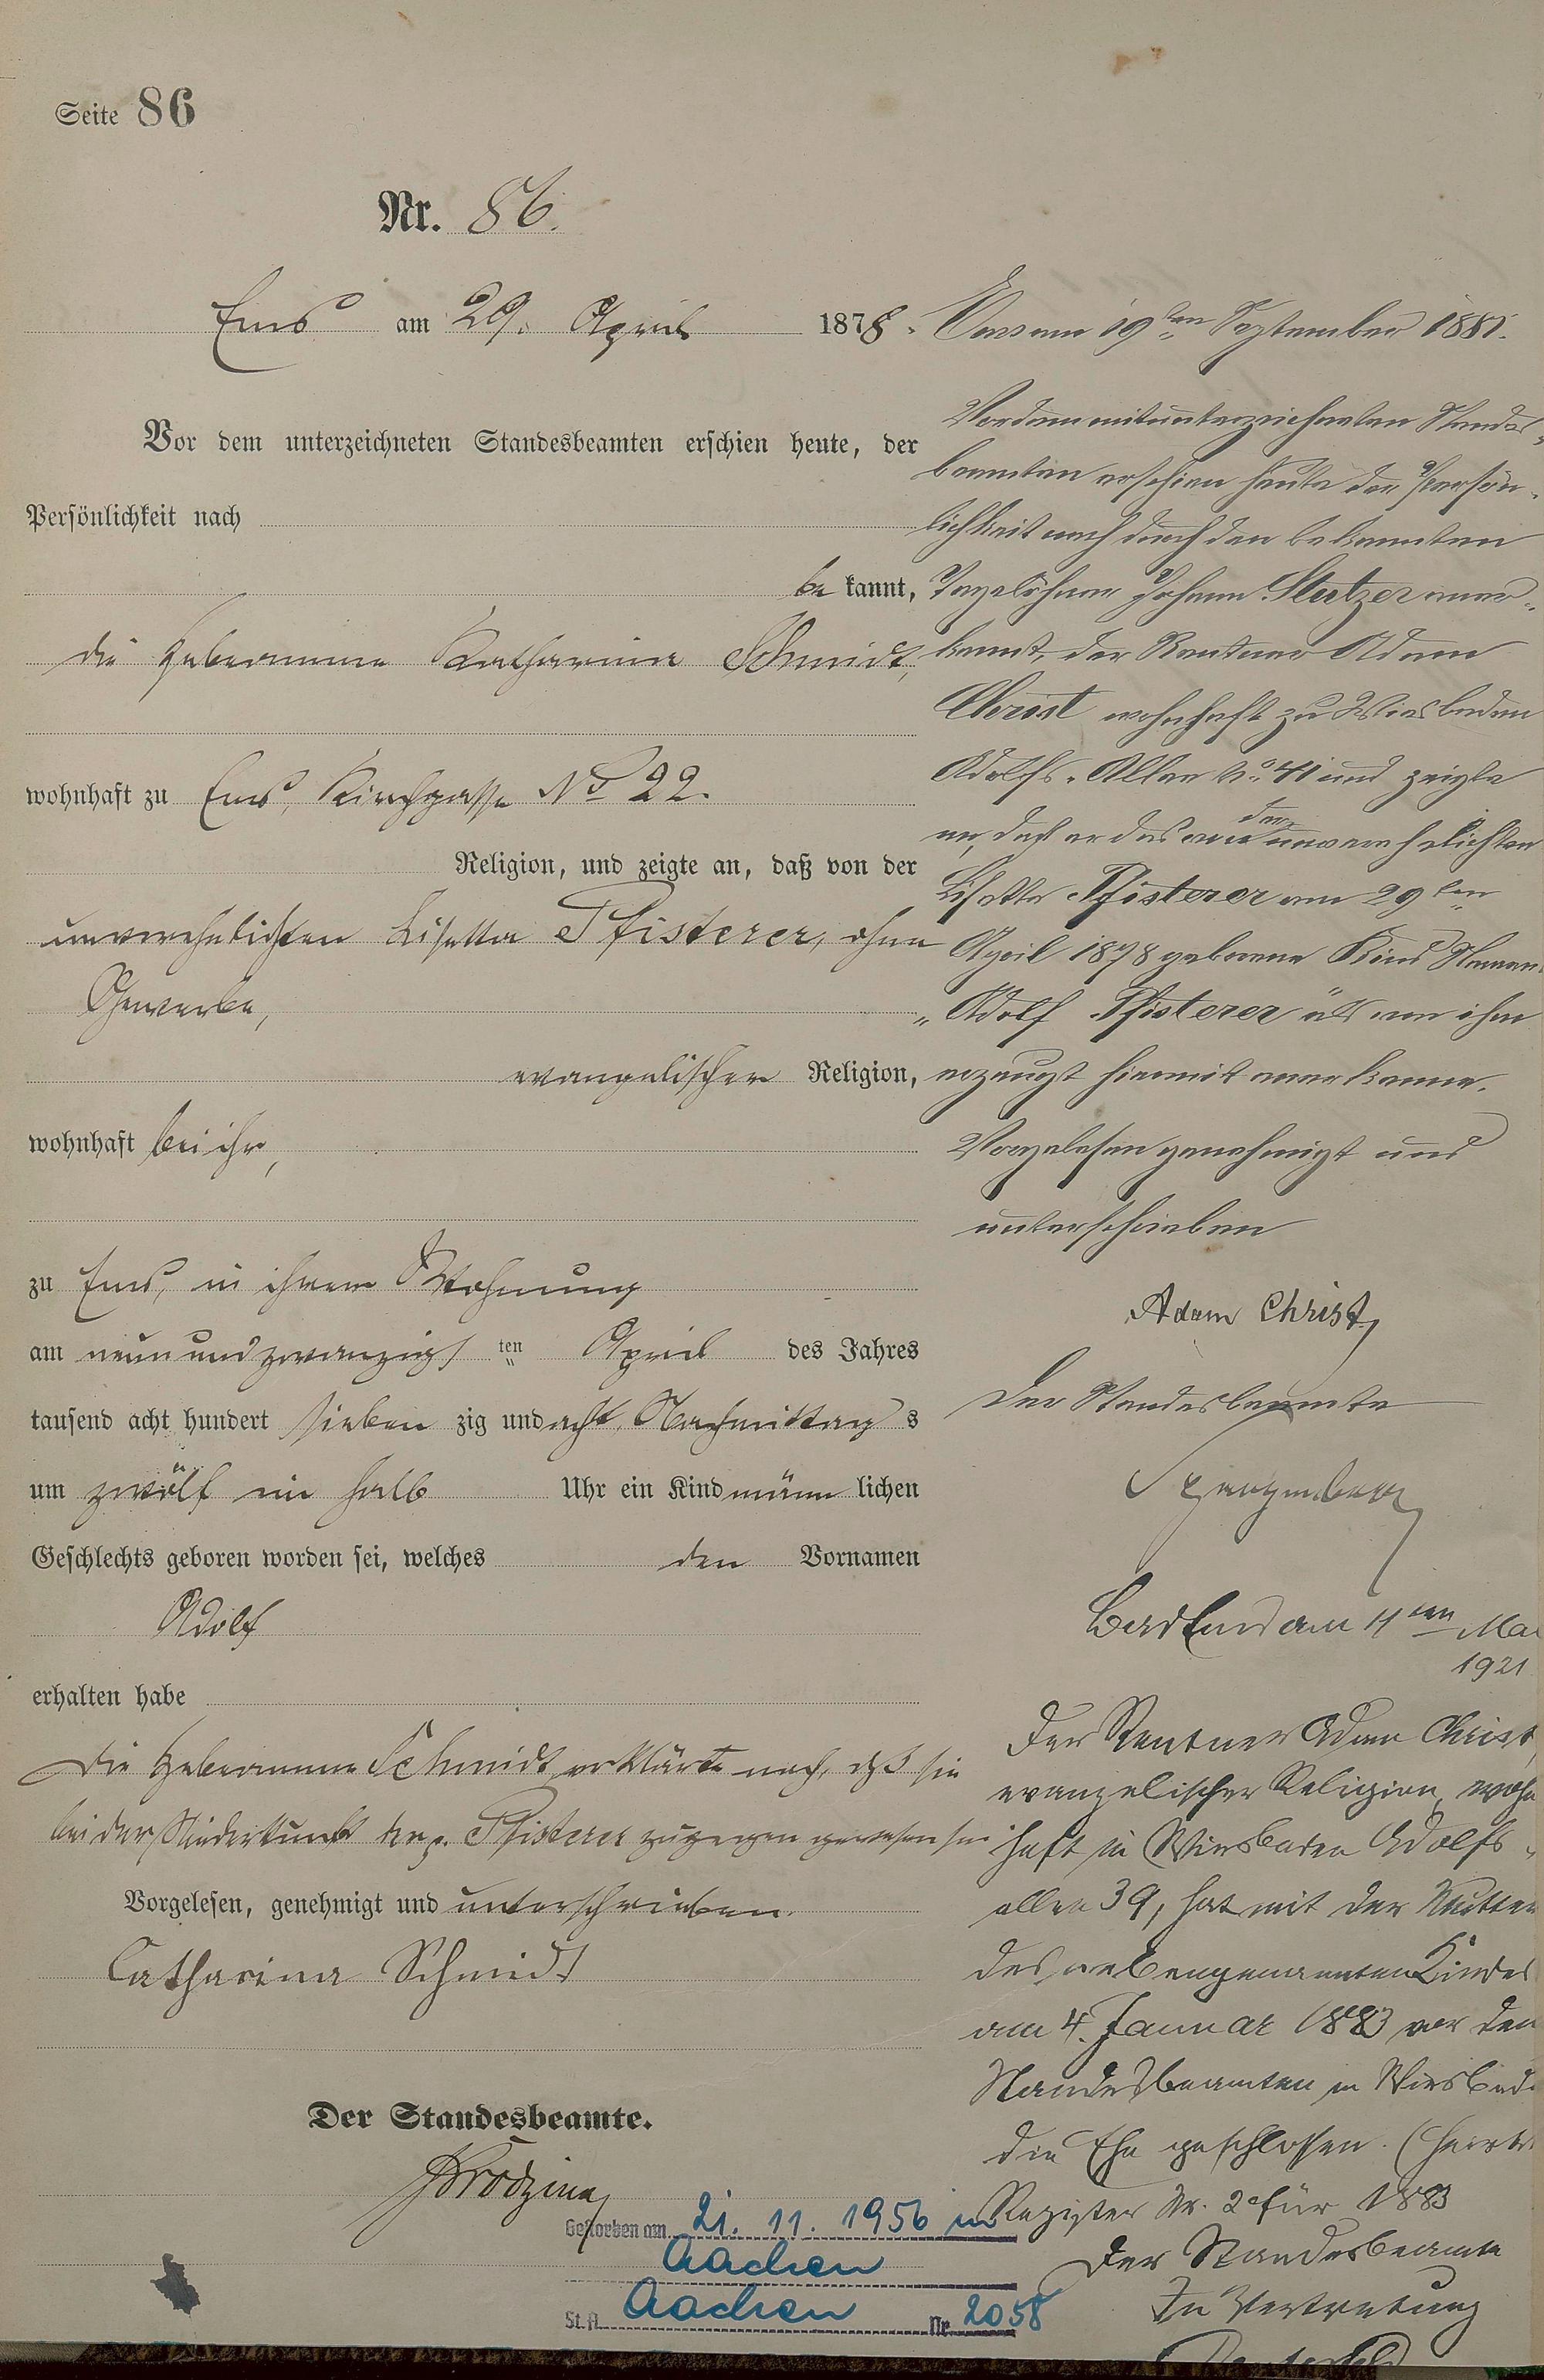 Seite 86
Nr. 86.
Ems am 29. April 1878.
Vor dem unterzeichneten Standesbeamten erschien heute, der
Persönlichkeit nach
be kannt,
die Hebamme Katharina Schmidt,
wohnhaft zu Ems, Kirchgasse No 22.
Religion, und zeigte an, daß von der
unverehelichten Lisetta Pfisterer, ohne
Gewerbe,
evangelischer Religion,
wohnhaft bei ihr,
zu Ems, in ihrer Wohnung
am neun und zwanzigs ten April des Jahres
tausend acht hundert sieben zig und acht, Nachmittag s
um zwölf ein halb Uhr ein Kind männ lichen
Geschlechts geboren worden sei, welches den Vornamen
Adolf
erhalten habe
Die Hebamme Schmidt erklärte noch, daß sie
bei der Niederkunft der p. Pfisterer zugegen gewesen sei
Vorgelesen, genehmigt und unterschrieben.
Catharina Schmidt
Der Standesbeamte.
Gestorben am 21. 11. 1956 in
Aachen
St.A. Aachen Nr. 2058
Ems am 19ten September 1881.
Vor dem mitunterzeichneten Standes-
beamten erschien heute der Persön-
lichkeit nach durch den bekannten
Tagelöhner Johann Stutzer aner-
kannt, der Rentner Adam
Christ wohnhaft zu Wiesbaden
Adolfs-Allee No 41 und zeigte
an, daß er das von der unverehelichten
Lisette Pfisterer am 29ten
April 1878 geborene Kind Namens
"Adolf Pfisterer" als von ihm
erzeugt hiermit anerkenne.
Vorgelesen genehmigt und
unterschrieben
Adam Christ,
Der Standesbeamte
Spangenberg
Bad Ems am 11ten Mai
1921
Der Rentner Adam Christ,
evangelischer Religion, wohn
haft in Wiesbaden Adolfs-
allee 39, hat mit der Mutter
des nebengenannten Kindes
am 4. Januar 1883 vor dem
Standesbeamten in Wiesbade
die Ehe geschlossen. (Heirats
Register Nr. 2 für 1883
Der Standesbeamte
In Vertretung